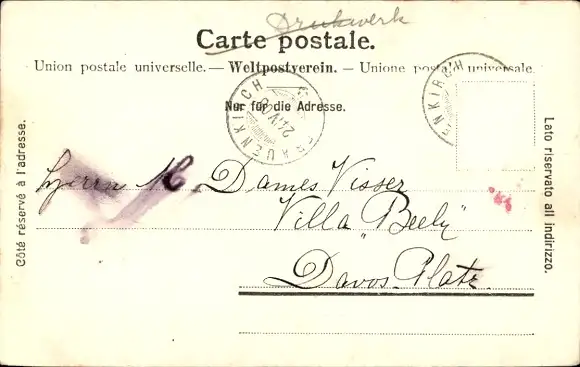 Druckwerk
Carte postale.
Union postale universelle. — Weltpostverein. — Unione postale universale.
FRAUENKIRCH
Nur für die Adresse.
Herrn M. Dames Visser
Villa „Beely"
Davos-Platz.
Côté réservé à l'adresse.
Lato riservato all indirizzo.